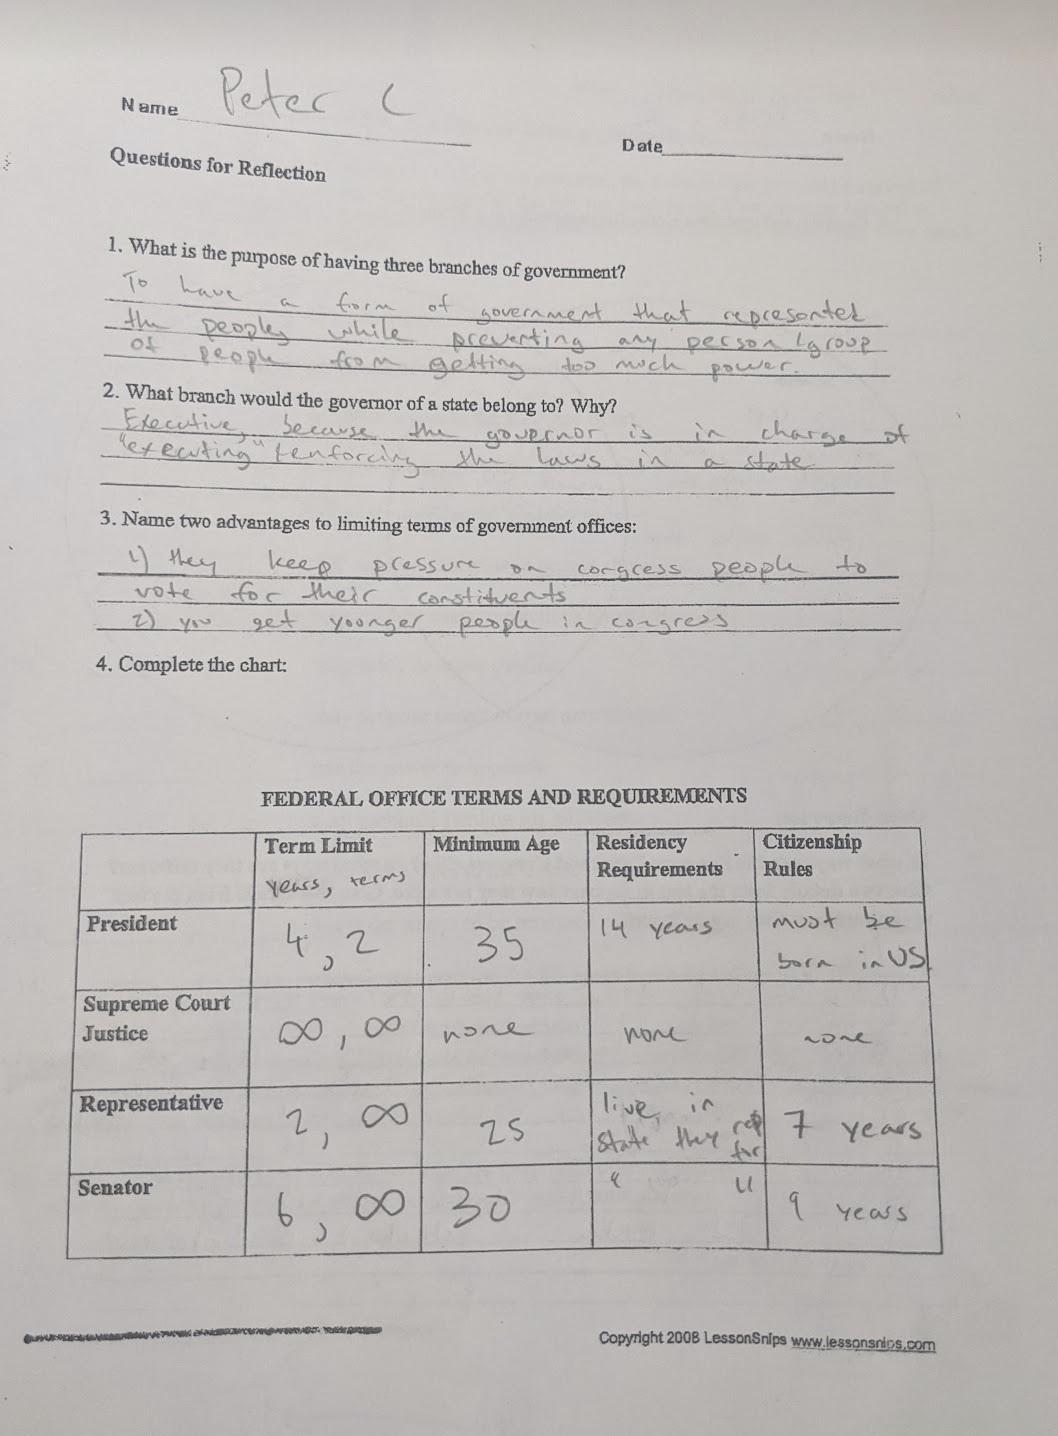 Name Peter C
Date
Questions for Reflection
1. What is the purpose of having three branches of government?
To have a form of government that represented
the people, while preventing any person/group
of people from getting too much power.
2. What branch would the governor of a state belong to? Why?
Executive, because the governor is in charge of
"executing" + enforcing the laws in a state
3. Name two advantages to limiting terms of government offices:
1) they keep pressure on congress people to
vote for their constituents
2) you get younger people in congress
4. Complete the chart:
FEDERAL OFFICE TERMS AND REQUIREMENTS
Term Limit Minimum Age Residency Citizenship
years, terms Requirements Rules
President 4, 2 35 14 years must be
born in US
Supreme Court
Justice ∞, ∞ none none none
Representative 2, ∞ 25 live in
state they rep 7 years
for
Senator 6, ∞ 30 " " 9 years
Copyright 2008 LessonSnips www.lessonsnips.com